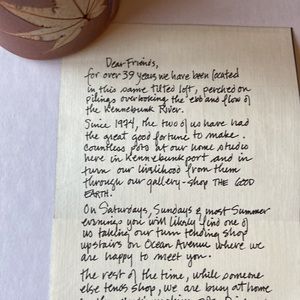 Dear Friends,
for over 39 years we have been located
in this same tilted loft, perched on
pilings overlooking the ebb and flow of
the Kennebunk River.
Since 1974, the two of us have had
the great good fortune to make
countless pots at our home studio
here in Kennebunkport and in
turn our livlihood from them
through our gallery-shop THE GOOD
EARTH.
On Saturdays, Sundays & most Summer
evenings you will likely find one of
us taking our turn tending shop
upstairs on Ocean Avenue where we
are happy to meet you.
the rest of the time, while someone
else tends shop, we are busy at home